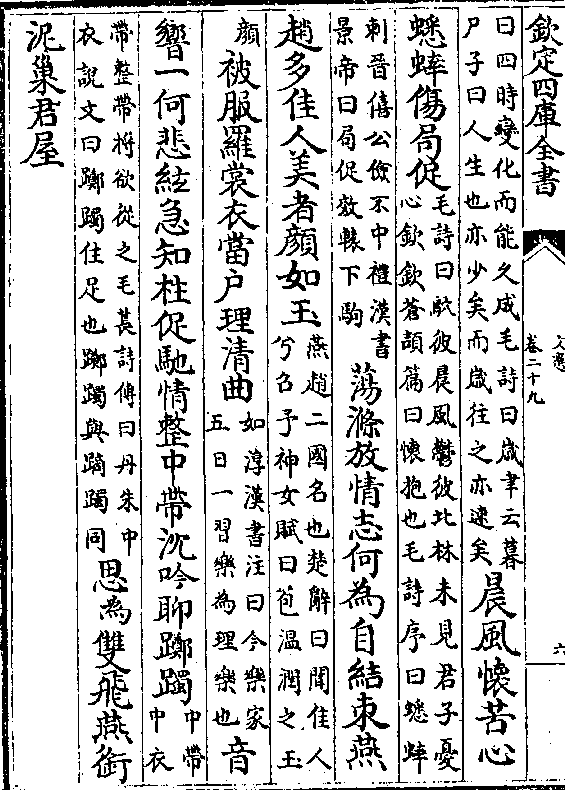 欽定四庫全書
文選
卷二十九
六
曰四時變化而能久成毛詩曰歲聿云暮
尸子曰人生也亦少矣而歲往之亦速矣
晨風懷苦心
蟋蟀傷局促
毛詩曰鴥彼晨風鬱彼北林未見君子憂
心欽欽蒼頡篇曰懷抱也毛詩序曰蟋蟀
刺晉僖公儉不中禮漢書
景帝曰局促效轅下駒
蕩滌放情志何為自結束燕
趙多佳人美者顏如玉
燕趙二國名也楚辭曰聞佳人
兮召予神女賦曰苞温潤之玉
顏
被服羅裳衣當户理清曲
如淳漢書注曰今樂家
五日一習樂為理樂也
音
響一何悲絃急知柱促馳情整中帶沈吟聊躑躅
中帶
中衣
帶整帶將欲從之毛萇詩傳曰丹朱中
衣說文曰躑躅住足也躑躅與蹢躅同
思為雙飛燕銜
泥巢君屋